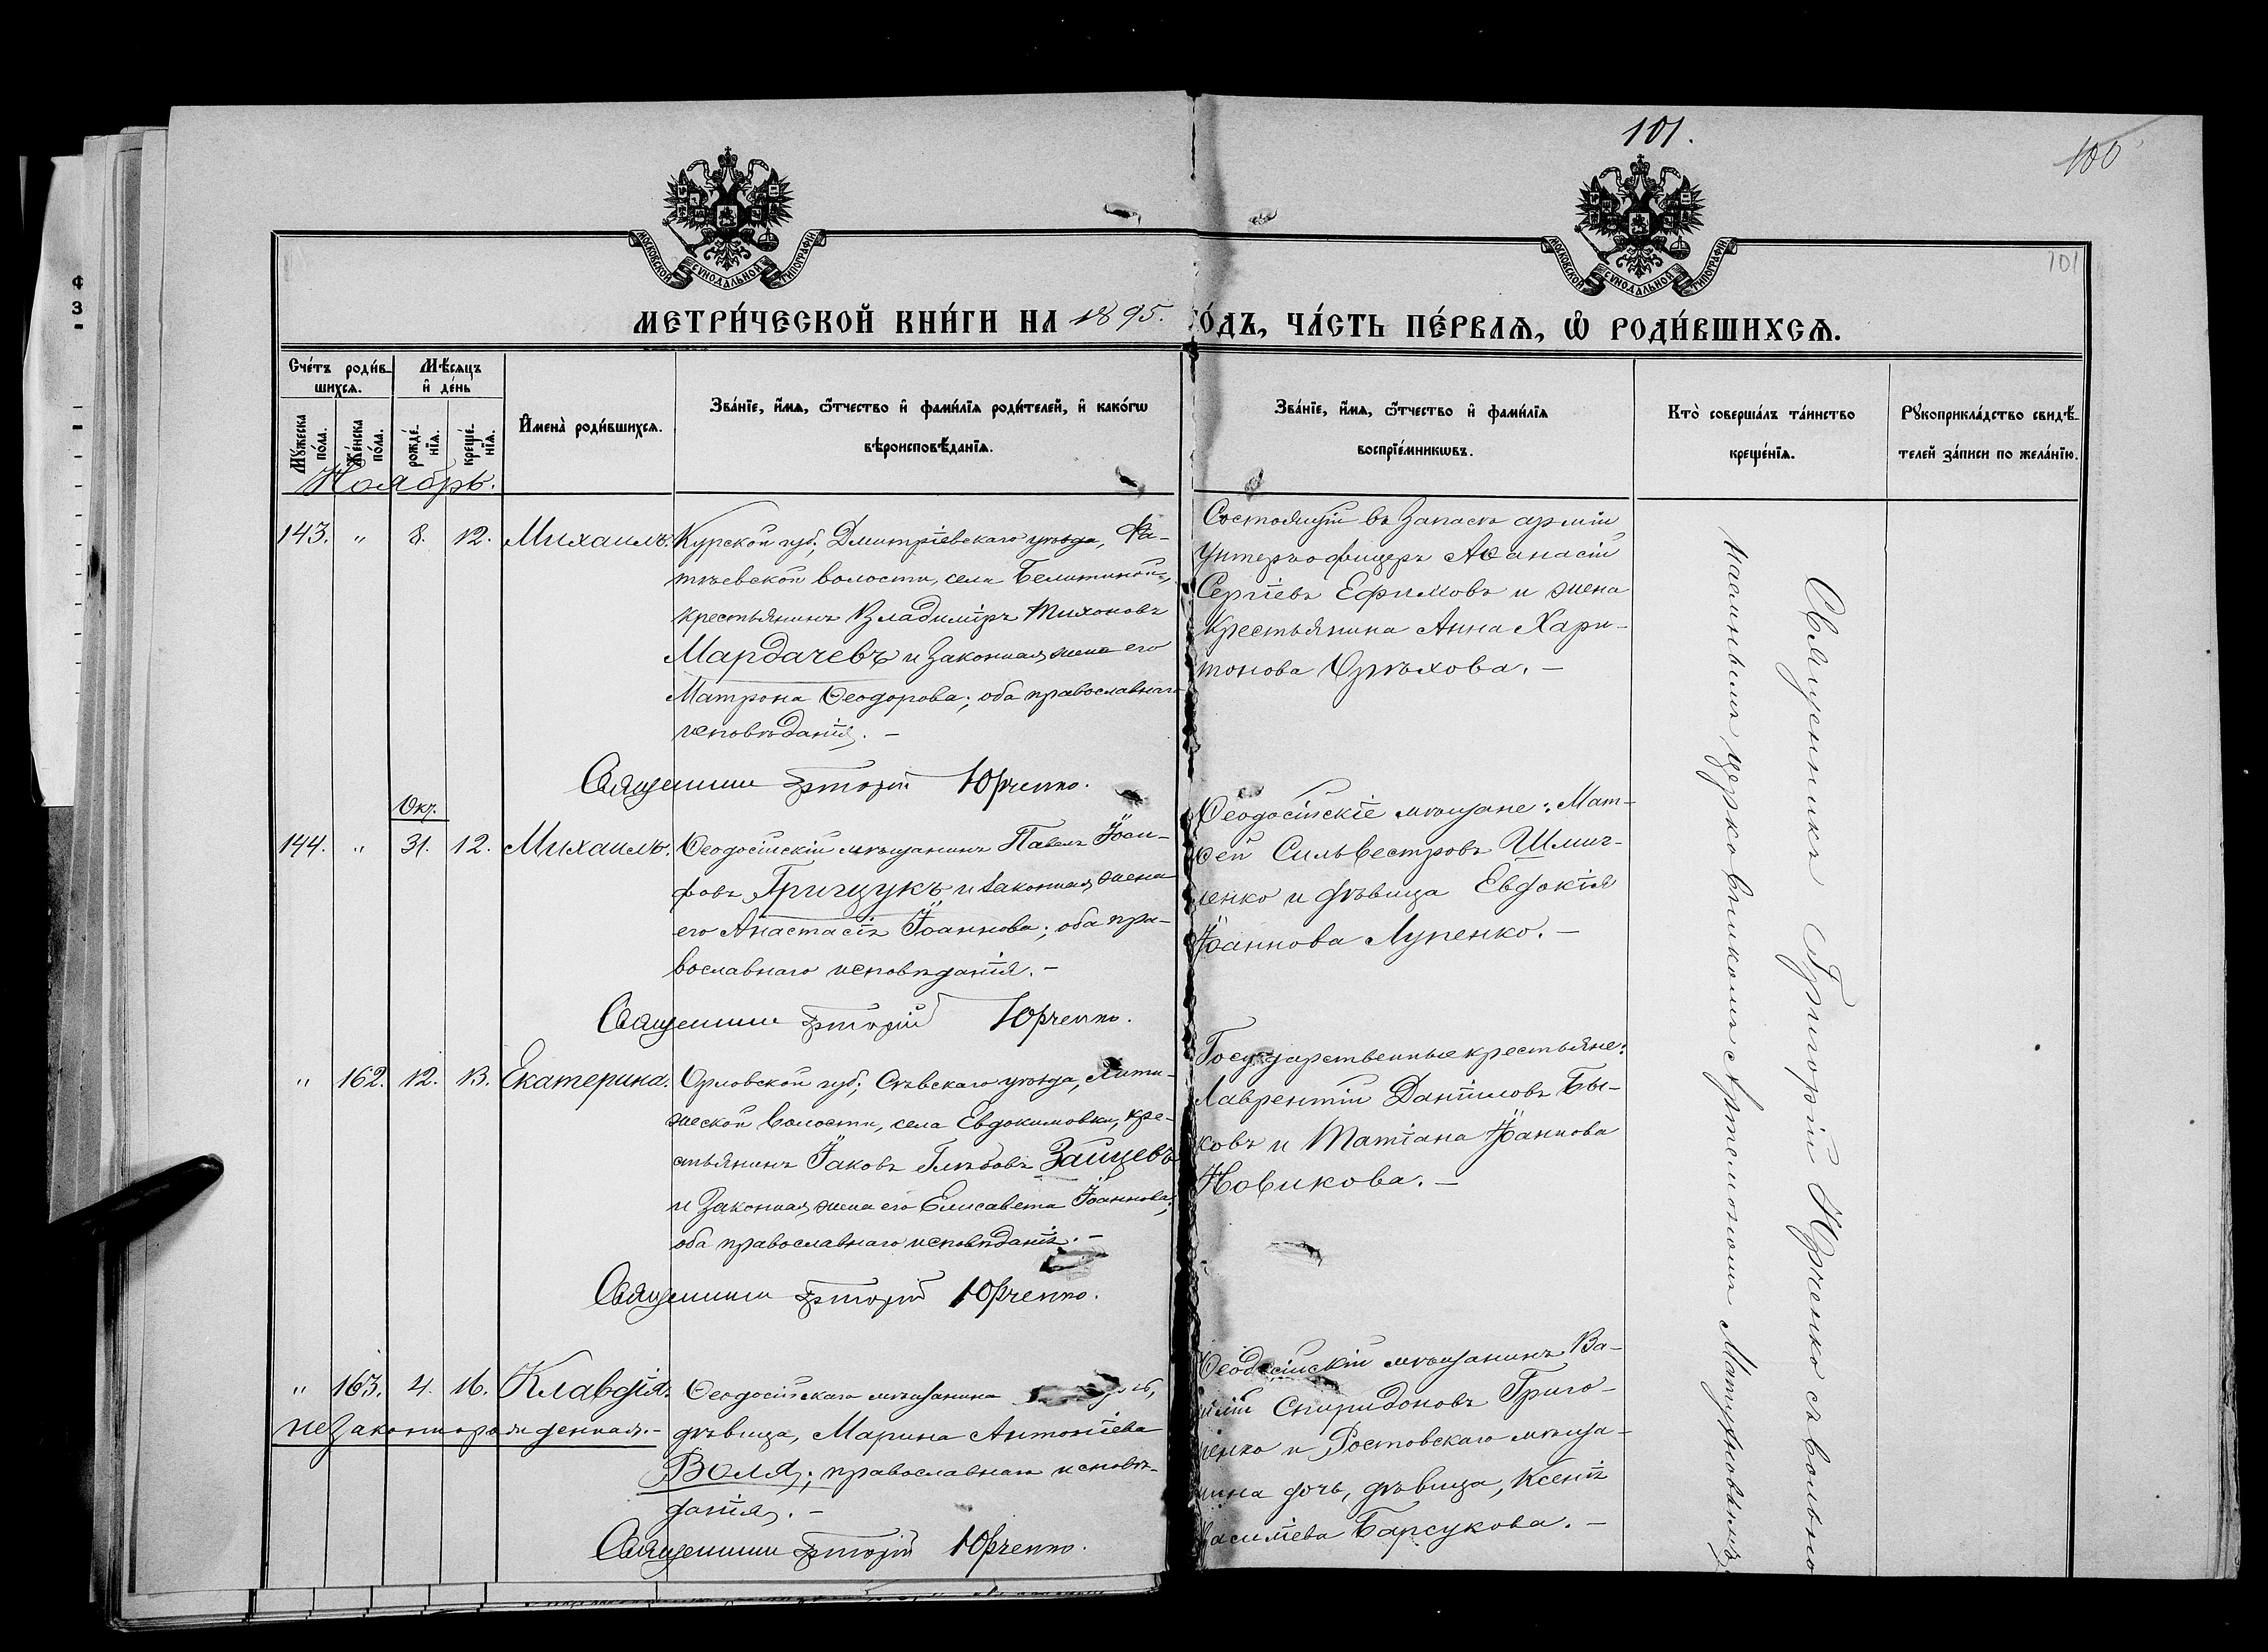 101.
100
101
МОСКОВСКОЙ СѴНОДАЛЬНОЙ ТИПОГРАФІИ
МОСКОВСКОЙ СѴНОДАЛЬНОЙ ТИПОГРАФІИ
МЕТРИ́ЧЕСКОЙ КНИ́ГИ НА 1895. ГО́ДЪ, ЧА́СТЬ ПЕ́РВАѦ, Ѡ҆ РОДИ́ВШИХСѦ.
Сче́тъ роди́в-
шихсѧ.
Мꙋ́жеска по́ла.
Же́нска по́ла.
Мѣ́сѧцъ
и҆ де́нь
рожде́-
нїѧ.
креще́-
нїѧ.
И҆мена̀ роди́вшихсѧ.
Зва́нїе, и҆́мѧ, ѻ҆́тчество и҆ фами́лїѧ роди́телей, и҆ како́гѡ
вѣроисповѣ́данїѧ.
Зва́нїе, и҆́мѧ, ѻ҆́тчество и҆ фами́лїѧ
воспрїе́мникѡвъ.
Кто̀ соверша́лъ та́инство
креще́нїѧ.
Рꙋкоприкла́дство свидѣ́-
телей за́писи по жела́нїю.
Ноябрь.
143. " 8. 12. Михаилъ. Курской губ., Дмитріевскаго уѣзда, Фа-
тѣевской волости, села
крестьянинъ Владиміръ Тихоновъ
Мардачевъ и законная жена его
Матрона Ѳеодорова; оба православнаго
исповѣданія. –
Священникъ Григорій Юрченко.
Состоящій въ запасѣ арміи
унтеръ офицеръ Аѳанасій
Сергіевъ Ефимовъ и жена
крестьянина Анна Хари-
тонова Орѣхова. –
Окт.
144. " 31. 12. Михаилъ. Ѳеодосійскій мѣщанинъ Павелъ Іоси-
фовъ Грищукъ и законная жена
его Анастасія Іоаннова; оба пра-
вославнаго исповѣданія. –
Священникъ Григорій Юрченко.
Ѳеодосійскіе мѣщане: Мат-
ѳей Сильвестровъ
енко и дѣвица Евдокія
Іоаннова Луценко. –
" 162. 12. 13. Екатерина. Орловской губ., Сѣвскаго уѣзда, Лити-
жеской волости, села Евдокимовки, кре-
стьянинъ Іаковъ Глѣбовъ Зайцевъ
и законная жена его Елисавета Іоаннова;
оба православнаго исповѣданія. –
Священникъ Григорій Юрченко.
Государственные крестьяне:
Лаврентій Даніиловъ Бы-
ковъ и Татіана Іоаннова
Новикова. –
" 163. 4. 16. Клавдія. Ѳеодосійскаго мѣщанина
незаконнорожденная. – дѣвица, Марина Антоніева
Воля; православнаго исповѣ-
данія. –
Священникъ Григорій Юрченко.
Ѳеодосійскій мѣщанинъ Ва-
силій Спиридоновъ Григо-
ренко и Ростовскаго мѣща-
нина дочь, дѣвица, Ксенія
Василіева Барсукова. –
Священникъ Григорій Юрченко съ вольно-
наемнымъ церковникомъ Артемономъ Матушковымъ.